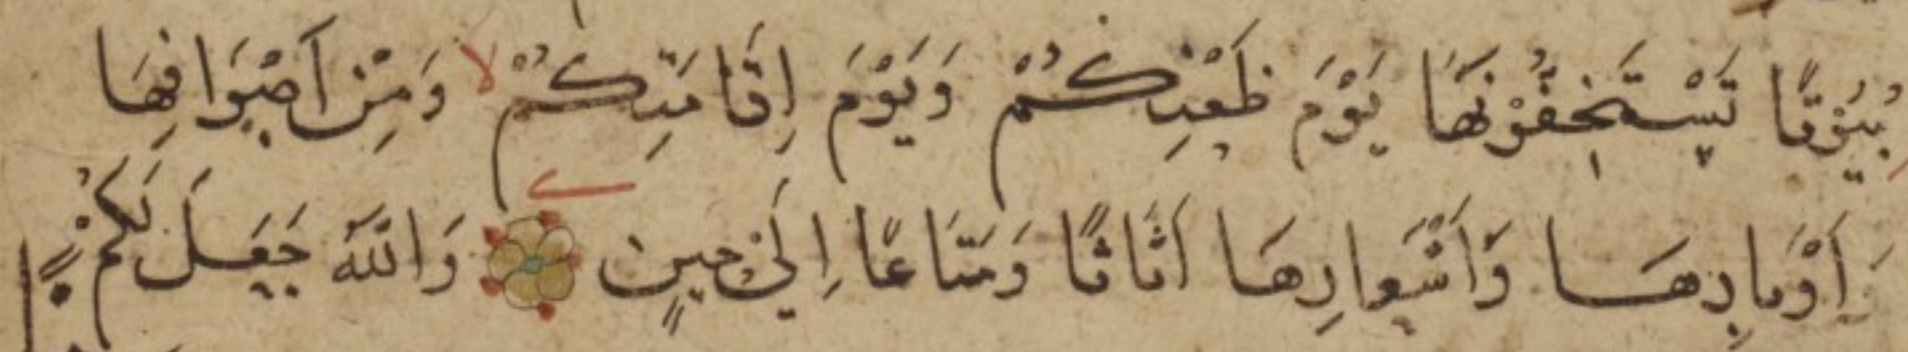 بُيُوْتًا تَسْتَخِفُّوْنَهَا يَوْمَ ظَعْنِكُمْ وَيَوْمَ اِقَامَتِكُمْ لا وَمِنْ اَصْوَافِهَا
وَاَوْبَارِهَا وَاَشْعَارِهَا اَثَاثًا وَمَتَاعًا اِلَىٰ حِيْنٍ وَاللّٰهُ جَعَلَ لَكُمْ